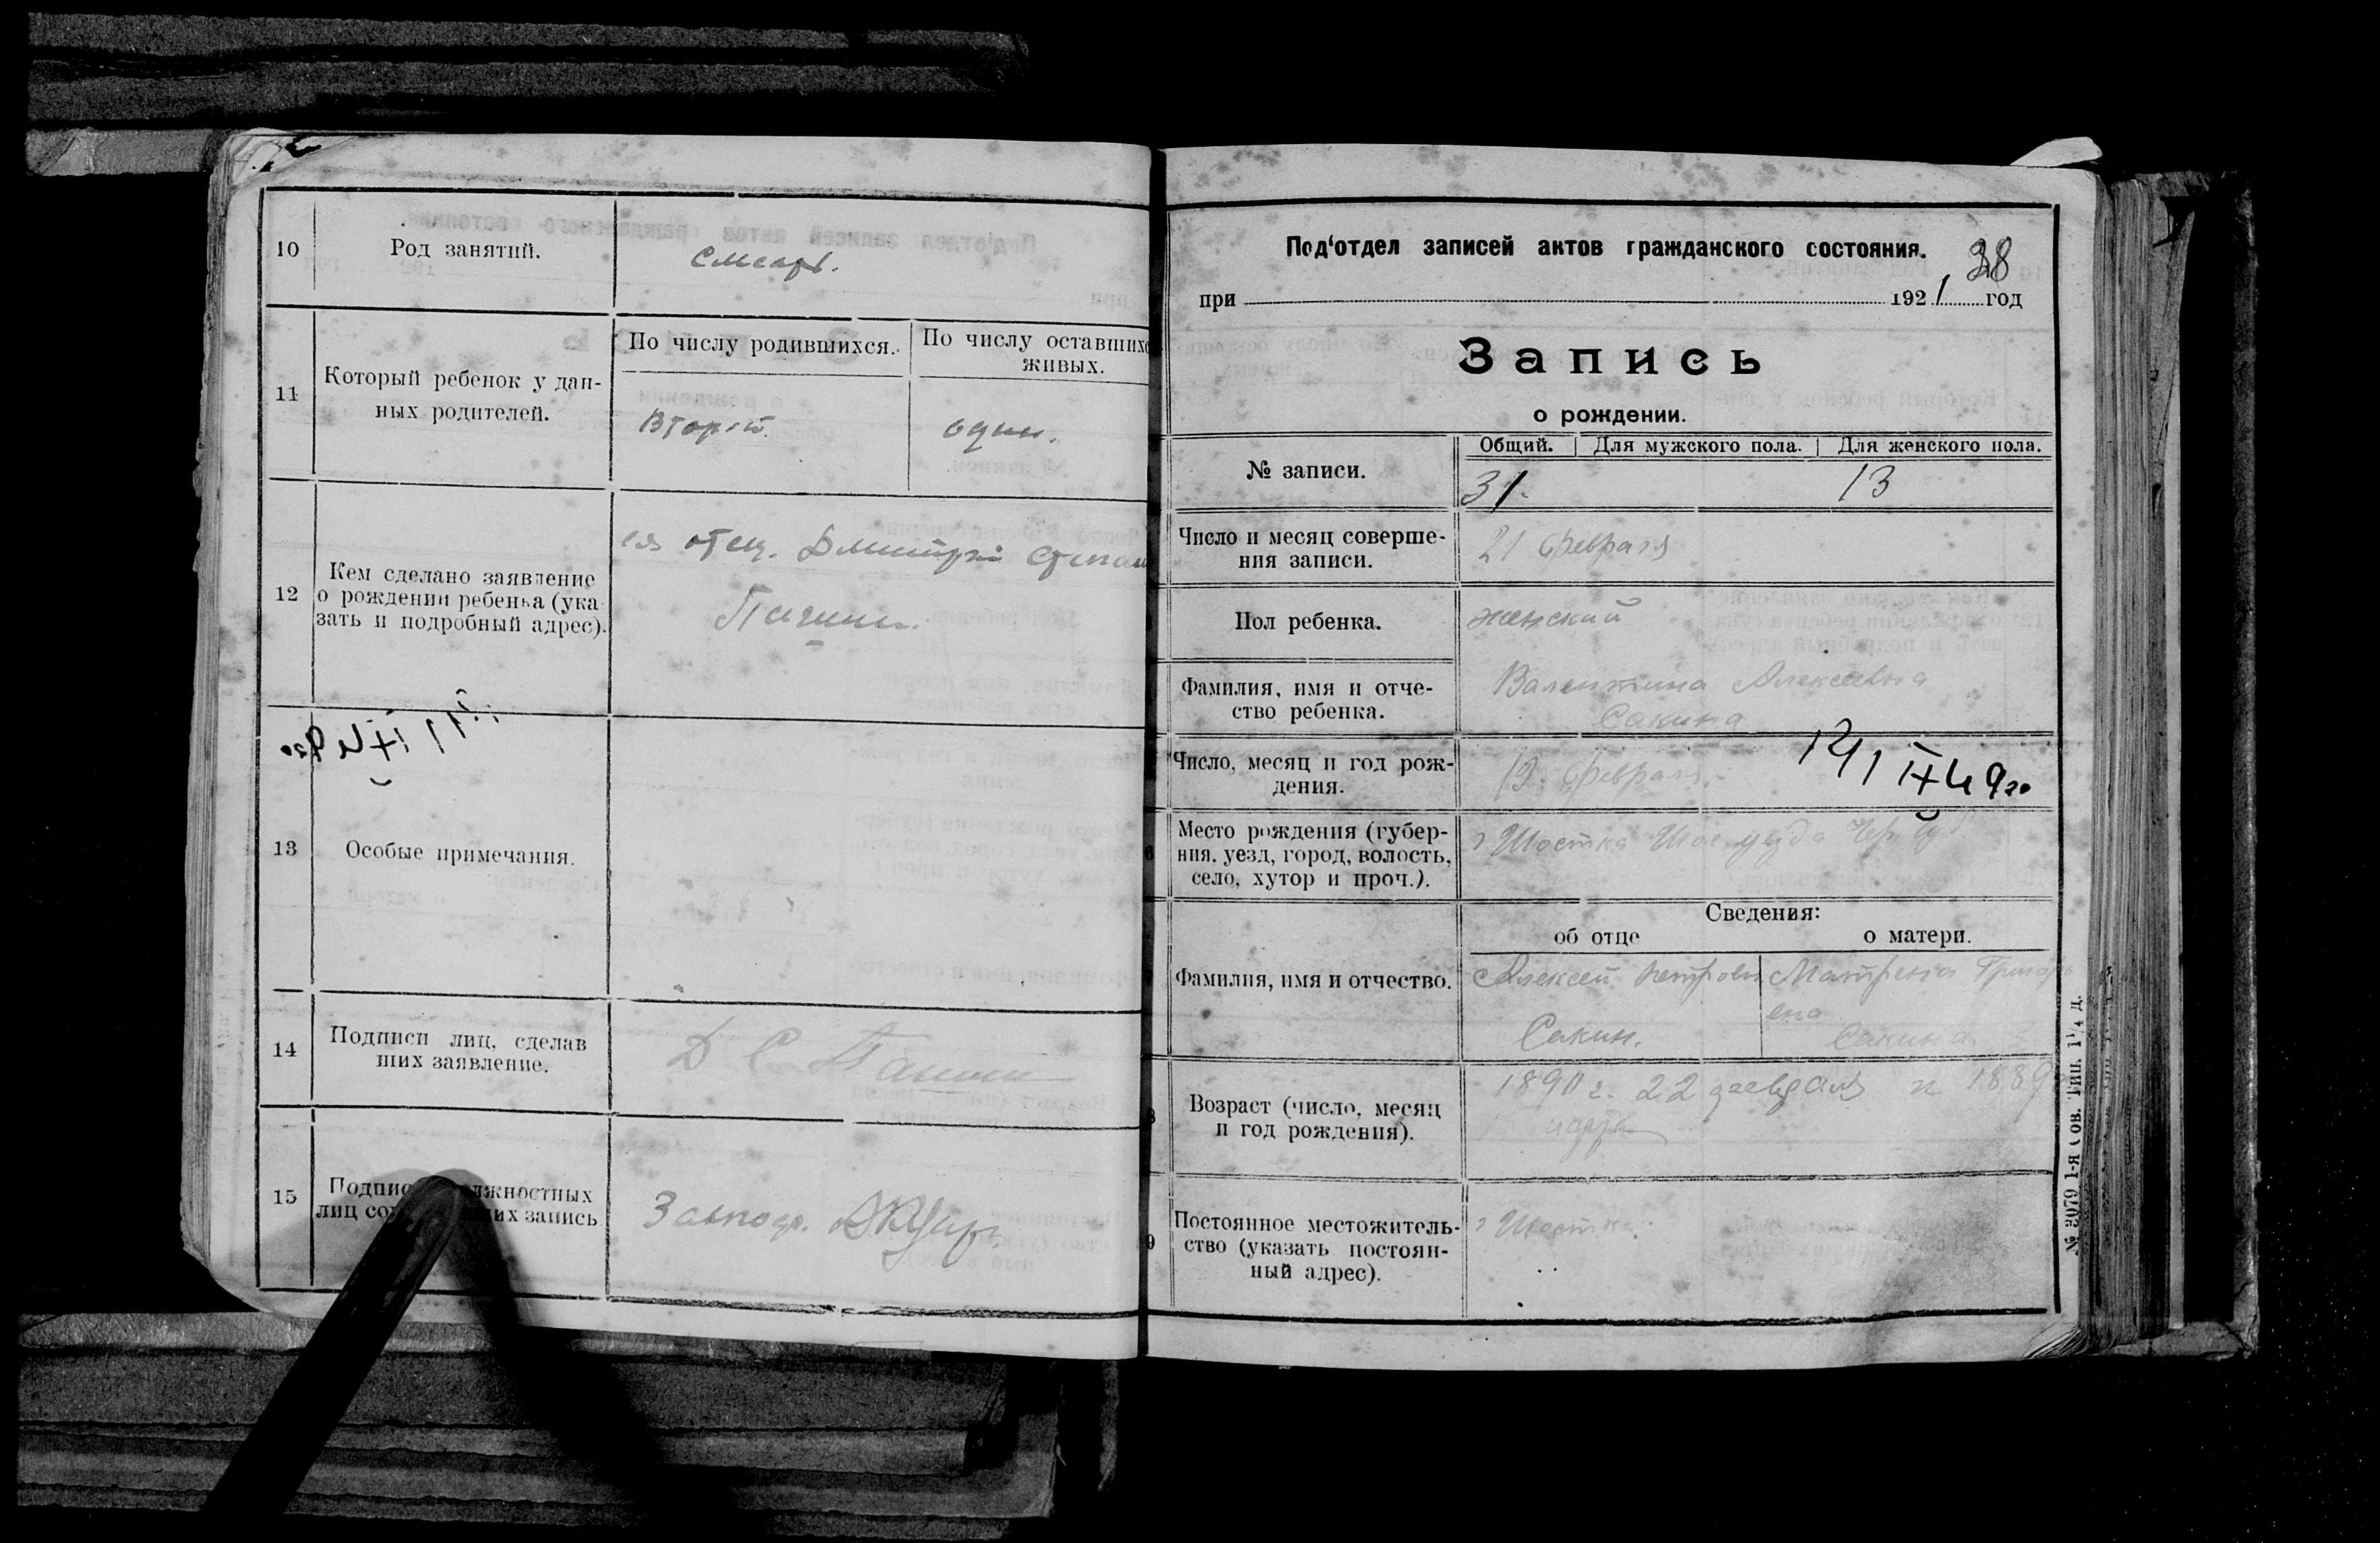 10
Род занятий.
Слесарь.
11
Который ребенок у дан-
ных родителей.
По числу родившихся.
По числу оставшихс
живых.
Второй.
один.
12
Кем сделано заявление
о рождении ребенка (ука
зать и подробный адрес).
ея отец. Дмитрий Степан
13
Особые примечания.
14
Подписи лиц, сделав
ших заявление.
Д С
15
Подпис лжностных
лиц со их запись
Завподр.
Под'отдел записей актов гражданского состояния.
38
при 1921 год
Запись
о рождении.
№ записи.
Общий. Для мужского пола. Для женского пола.
31. 13
Число и месяц соверше-
ния записи.
21 февраля
Пол ребенка.
женский
Фамилия, имя и отче-
ство ребенка.
Валентина Алексеевна
Сакина
Число, месяц и год рож-
дения.
19. февраля.
Место рождения (губер-
ния, уезд, город, волость,
село, хутор и проч.).
г Шостка Шос. уезда Чер. губ
Сведения:
об отце
о матери.
Фамилия, имя и отчество.
Алексей Петрович
Сакин.
Матрена Григорь
ена
Сакина
8
Возраст (число, месяц
и год рождения).
1890 г. 22 февраля и 1889
марта
9
Постоянное местожитель-
ство (указать постоян-
ный адрес).
г Шостка.
№ 3079 1-я Сов. Тип. 1¼ д.